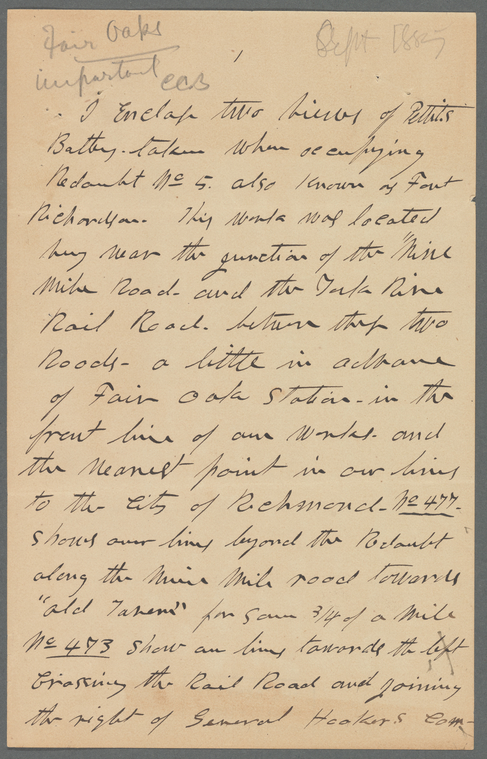 Fair Oaks
important CCB
Sept 1885
1
I Enclose two views of Pettits
Battery - taken when occupying
Redoubt No 5. also known as Fort
Richardson. This work was located
very near the junction of the "Nine
Mile Road - and the York River
Rail Road. between these two
Roads - a little in advance
of Fair Oak Station - in the
front line of our works - and
the nearest point in our lines
to the City of Richmond - No 477.
Shows our lines beyond the Redoubt
along the Nine Mile road towards
"old Tavern" for some 3/4 of a Mile
No 473 Show our lines towards the left
Crossing the Rail Road and joining
the right of General Hookers Com-